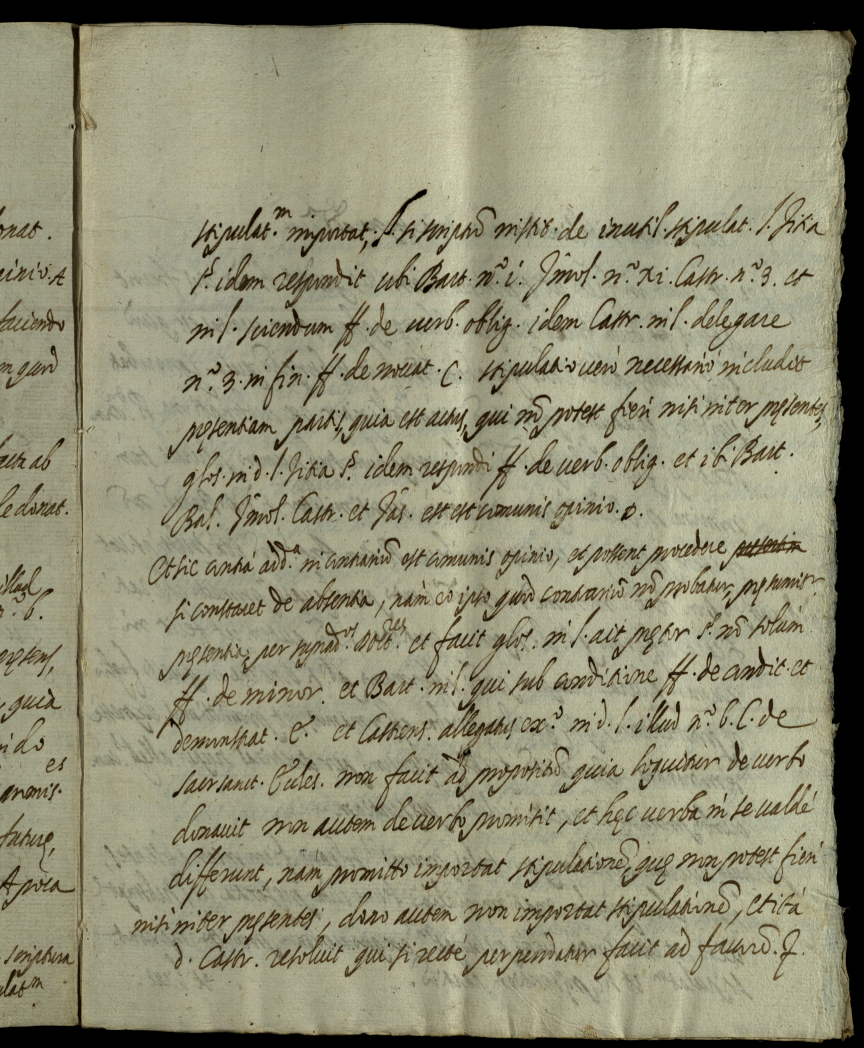 onat.
faciendo
le donat.
quia
futurę,
scriptura
stipulat.m importat, §. si scriptũ inst. de inutil. stipulat. l. Titia
§. idem respondit ubi Bart. n.o i. Jmol. n.o xi. Castr. n.o 3. et
in l. sciendum ff. de verb. oblig. idem Castr. in l. delegare
n.o 3. in fin. ff. de nouat. C. stipulatio uerò necessariò includit
pręsentiam partis, quia est actus, qui nõ potest fieri nisi inter pręsentes,
glos. in d. l. Titia §. idem respondi ff. de uerb. oblig. et ib. Bart.
Bal. Jmol. Castr. et Jas. est comunis opinio. D.
Et sic contrà add.a in contrariũ est comunis opinio, et possent procedere
si constaret de absentia, nam eo ipso quod contrariũ nõ probatur, pręsumitr
pręsentia, per et facit glos. in l. ait pręter §. nõ solum
ff. de minor. et Bart. in l. qui sub conditione ff. de condit. et
demonstrat. E. et Castrens. allegatus ex.o in d. l. illud n.o 6. C. de
sacrsanct. Eccles. non facit ad propositũ quia loquitur de uerbo
donauit non autem de uerbo promisit, et hęc uerba in se valdè
differunt, nam promitto importat stipulationẽ, quę non potest fieri
nisi inter pręsentes, dono autem non importat stipulationẽ, et ità
d. Castr. resoluit qui si rectè perpendatur facit ad fauorẽ. F.